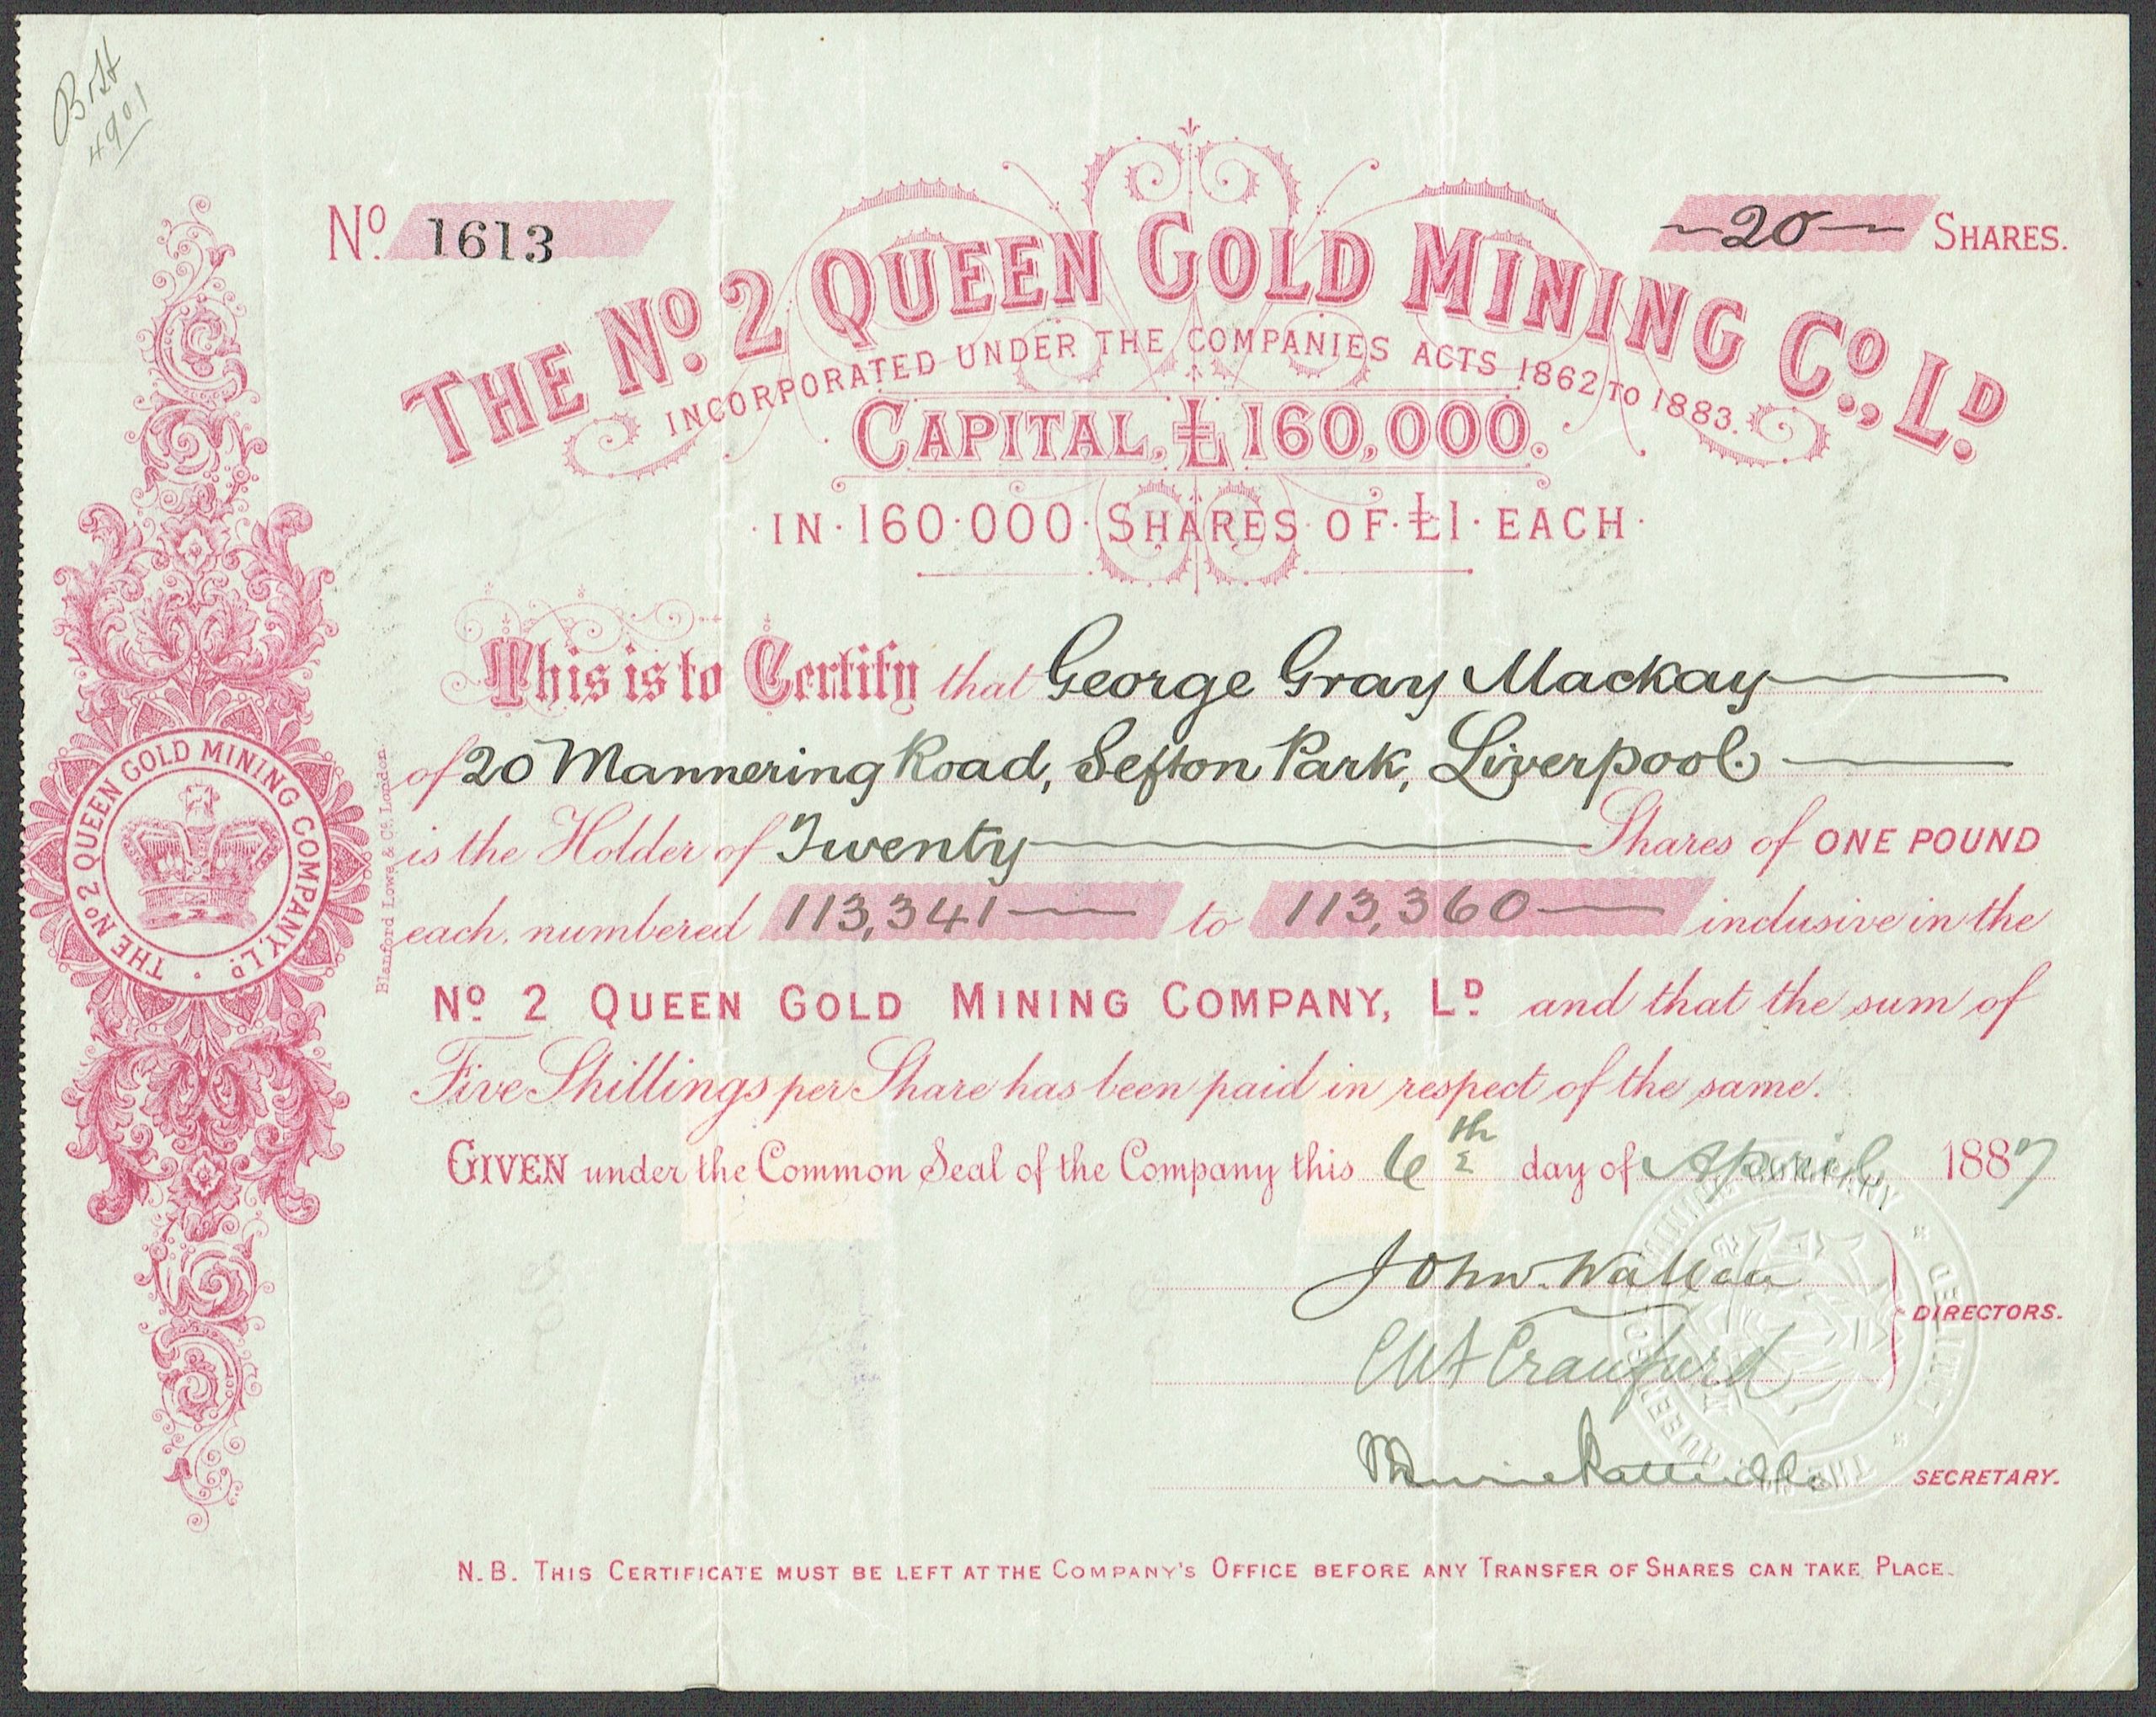 4901
Nº. 1613
20 SHARES.
THE Nº. 2 QUEEN GOLD MINING Cº., Lᴰ.
INCORPORATED UNDER THE COMPANIES ACTS 1862 TO 1883.
CAPITAL, £160,000.
· IN · 160 · 000 · SHARES · OF · £1 · EACH ·
This is to Certify that George Gray Mackay
of 20 Mannering Road, Sefton Park, Liverpool.
is the Holder of Twenty Shares of ONE POUND
each, numbered 113,341 to 113,360 inclusive in the
Nº 2 QUEEN GOLD MINING COMPANY, Lᴰ. and that the sum of
Five Shillings per Share has been paid in respect of the same.
GIVEN under the Common Seal of the Company this 6th day of April 1887
John Wallace
Craufurd
DIRECTORS.
SECRETARY.
N.B. THIS CERTIFICATE MUST BE LEFT AT THE COMPANY'S OFFICE BEFORE ANY TRANSFER OF SHARES CAN TAKE PLACE.
THE Nº 2 QUEEN GOLD MINING COMPANY, Lᴰ. ·
Blanford Lowe, & Cº. London
THE Nº 2 QUEEN GOLD MINING COMPANY * LIMITED *